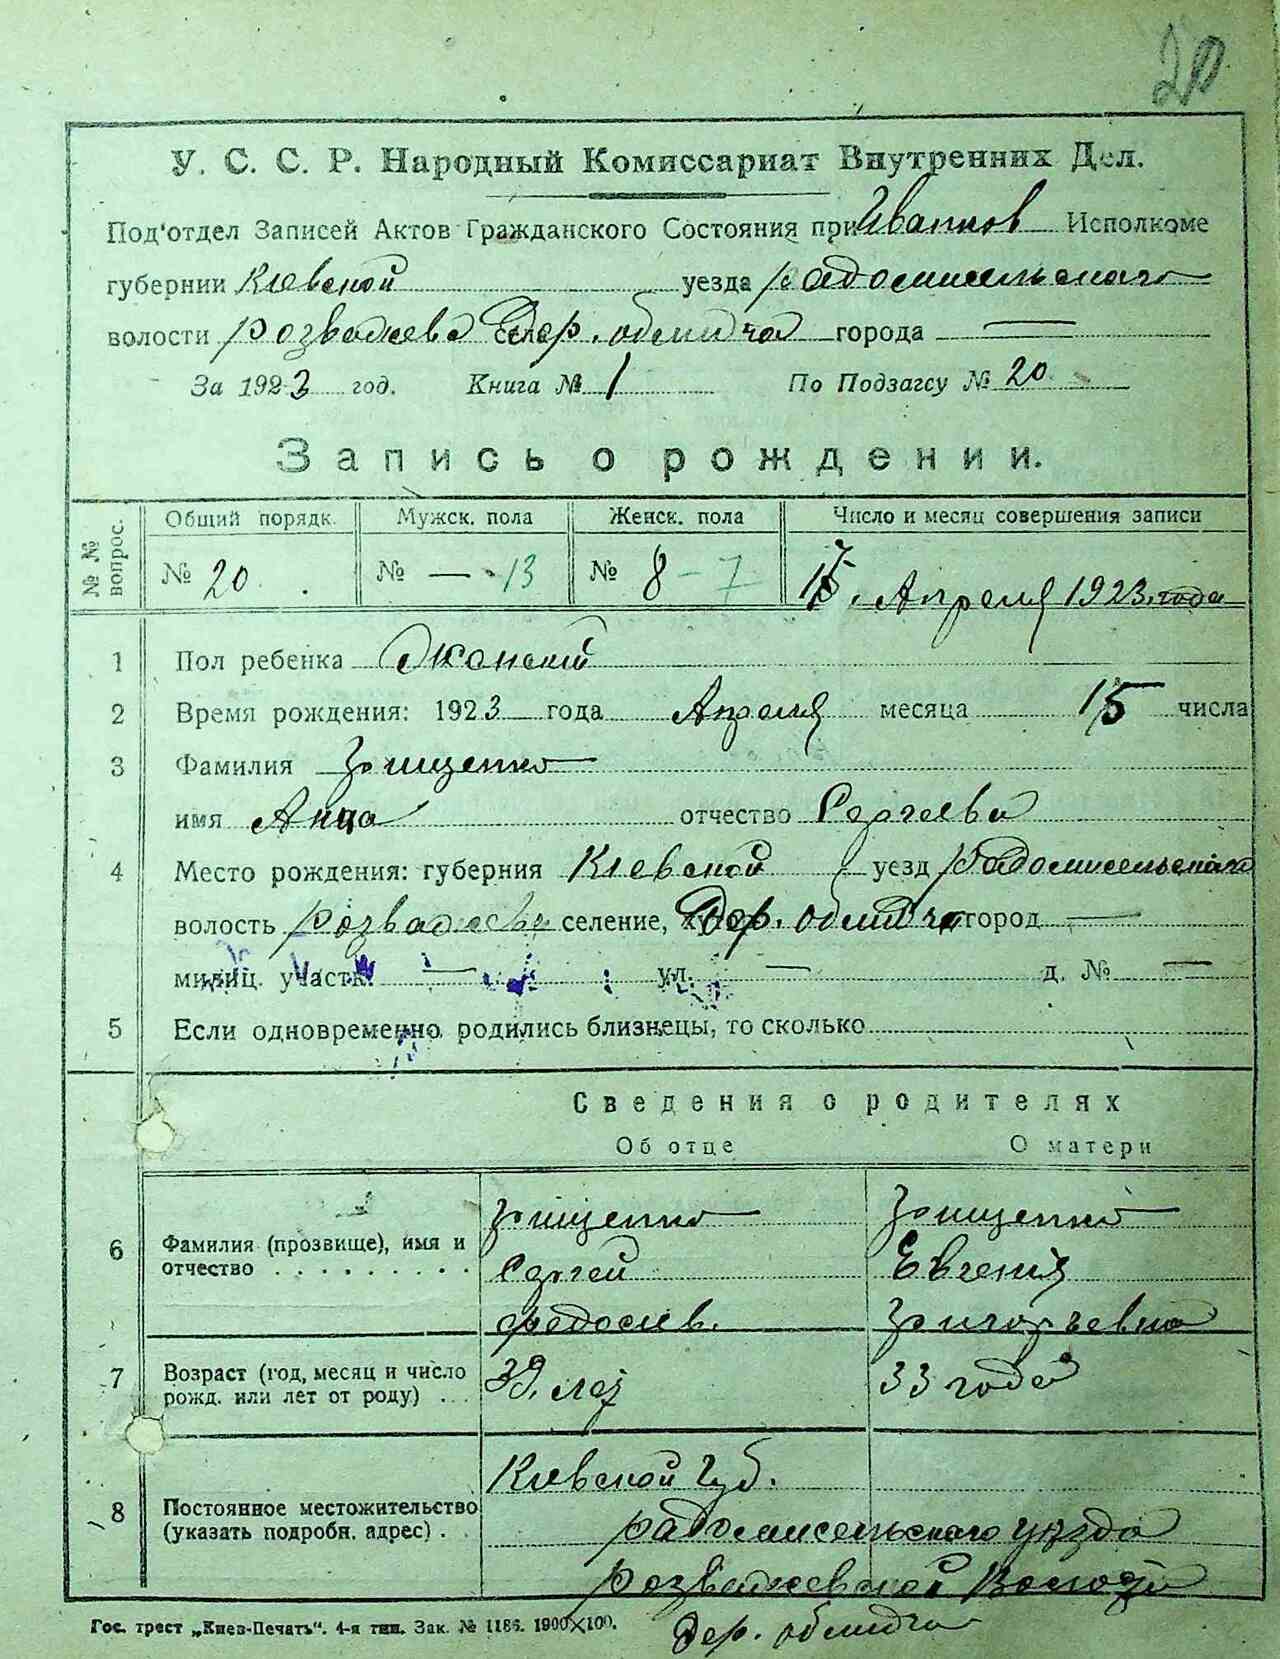 20
У. С. С. Р. Народный Комиссариат Внутренних Дел.
Под'отдел Записей Актов Гражданского Состояния при Иванков Исполкоме
губернии Киевской уезда радомисельского
волости розважева Дер. обмидча города —
За 1923 год. Книга № 1 По Подзагсу № 20
Запись о рождении.
№ № вопрос. Общий порядк. Мужск. пола Женск. пола Число и месяц совершения записи
№ 20. № — 13 № 8 – 7 Апреля 1923 года
1 Пол ребенка Женский
2 Время рождения: 1923 года Апреля месяца 15 числа
3 Фамилия Грищенко
имя Анна отчество Сергеева
4 Место рождения: губерния Киевской уезд радомисельского
волость розважева селение, Дер. обмидча город —
милиц. участк. — ул. — д. № —
5 Если одновременно родились близнецы, то сколько
Сведения о родителях
Об отце О матери
6 Фамилия (прозвище), имя и отчество Грищенко Грищенко
Сергей Евгения
федосиев. Григорьевна
7 Возраст (год, месяц и число рожд. или лет от роду) 39. лет 33 года
8 Постоянное местожительство (указать подробн. адрес) Киевской Губ.
радомисельского уезда
розважевской Волости
дер. обмидча
Гос. трест „Киев-Печать“. 4-я тип. Зак. № 1186. 1900×100.